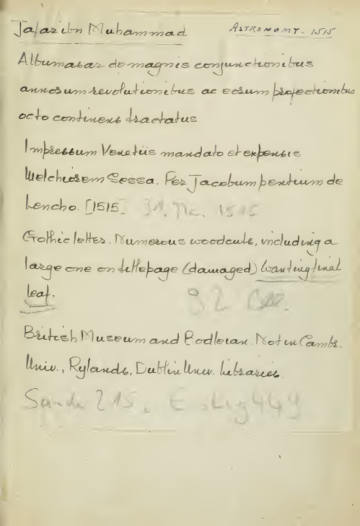 Jafar ibn Muhammad ASTRONOMY. 1515
Albumasar de magnis conjunctionibus
annorum revolutionibus ac eorum profectionibus
octo continens tractatus
Impressum Venetiis mandato et expensis
Melchiorem Sessa. Per Jacobum pentium de
Lencho. [1515]. 31. 1515
Gothic letter. Numerous woodcuts, including a
large one on titlepage (damaged) wanting final
leaf.
British Museum and Bodleian. Not in Camb.
Univ., Rylands, Dublin Univ. Libraries